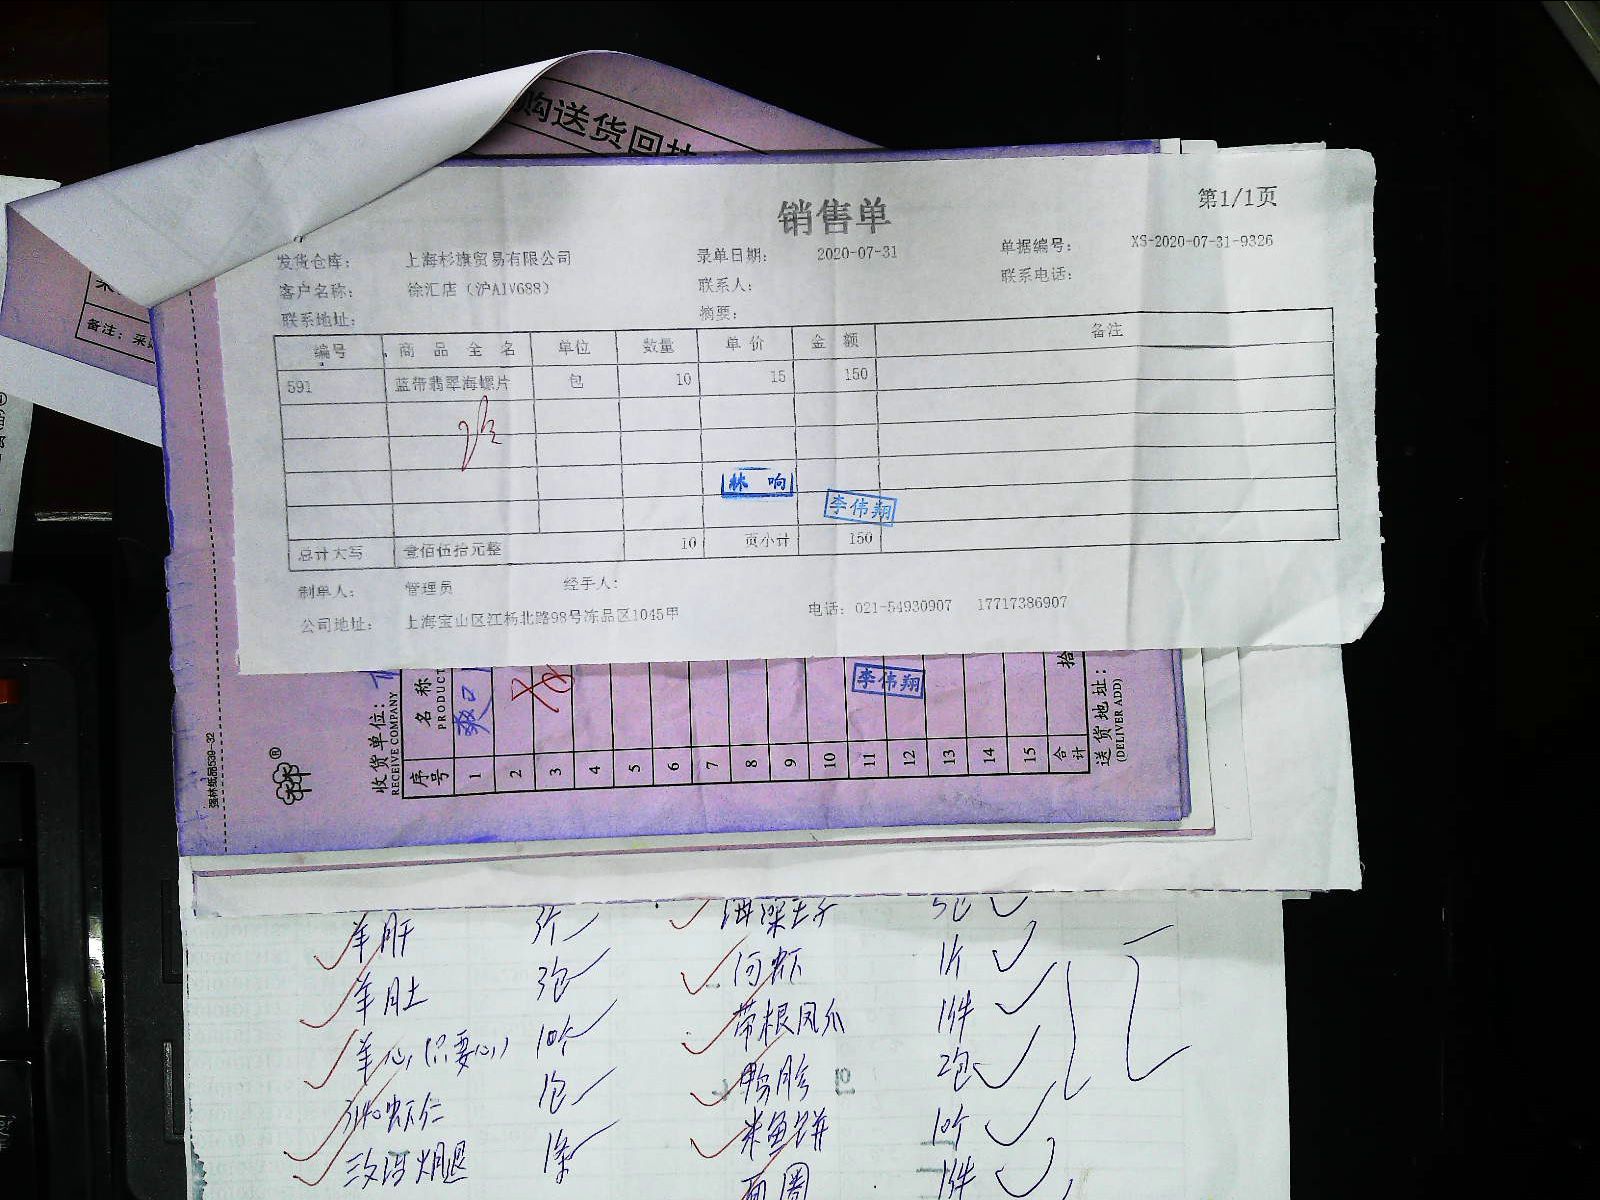 购送货回执
备注：采
销售单
第1/1页
发货仓库： 上海杉旗贸易有限公司 录单日期： 2020-07-31 单据编号： XS-2020-07-31-9326
客户名称： 徐汇店（沪AIV688） 联系人： 联系电话：
联系地址： 摘要：
编号 商品全名 单位 数量 单价 金额 备注
591 蓝带翡翠海螺片 包 10 15 150
林响
李伟翔
总计大写 壹佰伍拾元整 10 页小计 150
制单人： 管理员 经手人：
公司地址： 上海宝山区江杨北路98号冻品区1045甲 电话：021-54930907 17717386907
强林纸品539-32
收货单位：
RECEIVE COMPANY
序号 名称
PRODUCT
1 爽口
2
3
4
5
6
7
8
9
10
11
12
13
14
15
合计
拾
李伟翔
送货地址：
(DELIVER ADD)
羊肝 3个
羊肚 3包
河虾 1斤
羊心(只要心) 10个
带根凤爪 1件
虾仁 1包
鸭胗 2包
火腿 1条
米鱼饼 10个
面圈 1件